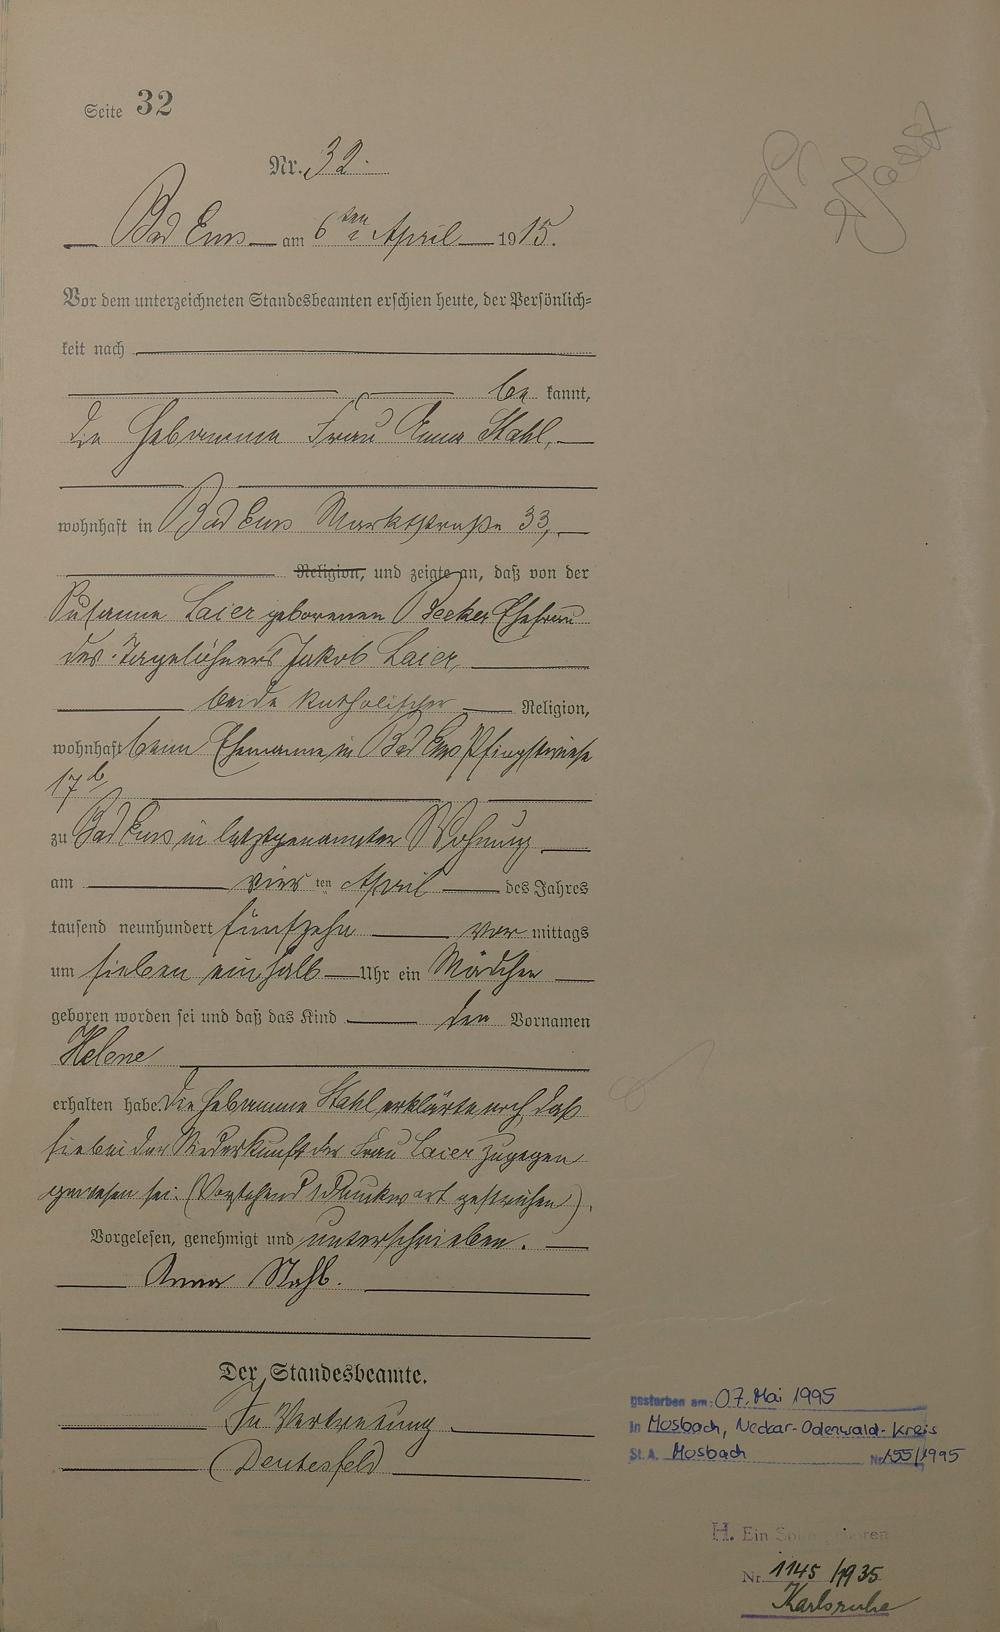 Seite 32
Nr. 32.
Bad Ems am 6ten April 1915.
Vor dem unterzeichneten Standesbeamten erschien heute, der Persönlich=
keit nach
be kannt,
die Hebamme Frau Anna Stahl,
wohnhaft in Bad Ems Marktstraße 33,
Religion, und zeigte an, daß von der
Susanna Laier geborenen Becker Ehefrau
des Tagelöhners Jakob Laier,
beide katholischer Religion,
wohnhaft beim Ehemanne in Bad Ems Pfingstwiese
17b,
zu Bad Ems in letztgenannter Wohnung
am vier ten April des Jahres
tausend neunhundert fünfzehn vor mittags
um sieben ein halb Uhr ein Mädchen
geboren worden sei und daß das Kind den Vornamen
Helene
erhalten habe. Die Hebamme Stahl erklärte noch, daß
sie bei der Niederkunft der Frau Laier zugegen
gewesen sei. (Vorstehend 1 Druckwort gestrichen).
Vorgelesen, genehmigt und unterschrieben.
Anna Stahl.
Der Standesbeamte.
In Vertretung
Deutesfeld
gestorben am: 07. Mai 1995
in Mosbach, Neckar-Odenwald-Kreis
St.A. Mosbach Nr. 155/1995
H. Ein
Nr. 1145/1935
Karlsruhe